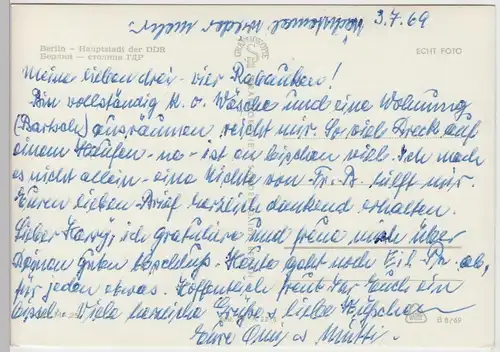 3.7.69
Berlin – Hauptstadt der DDR
Берлин – столица ГДР
ECHT FOTO
Meine lieben drei – vier Rabauken!
Bin vollständig K. o. Wäsche und eine Wohnung
(Bartsch) ausräumen reicht mir. So viel Dreck auf
einem Haufen – na – ist ein bißchen viel. Ich mach
es nicht allein – eine Nichte von Fr. B. hilft mir.
Euren lieben Brief herzlich dankend erhalten.
Lieber Harry, ich gratuliere und freue mich über
Deinen guten Abschluß. Heute geht noch Eil. Pr. ab,
für jeden etwas. Hoffentlich freut Ihr Euch ein
bißchen. Viele herzliche Grüße, liebe Küßchen
Eure Omi u. Mutti.
B 6/69